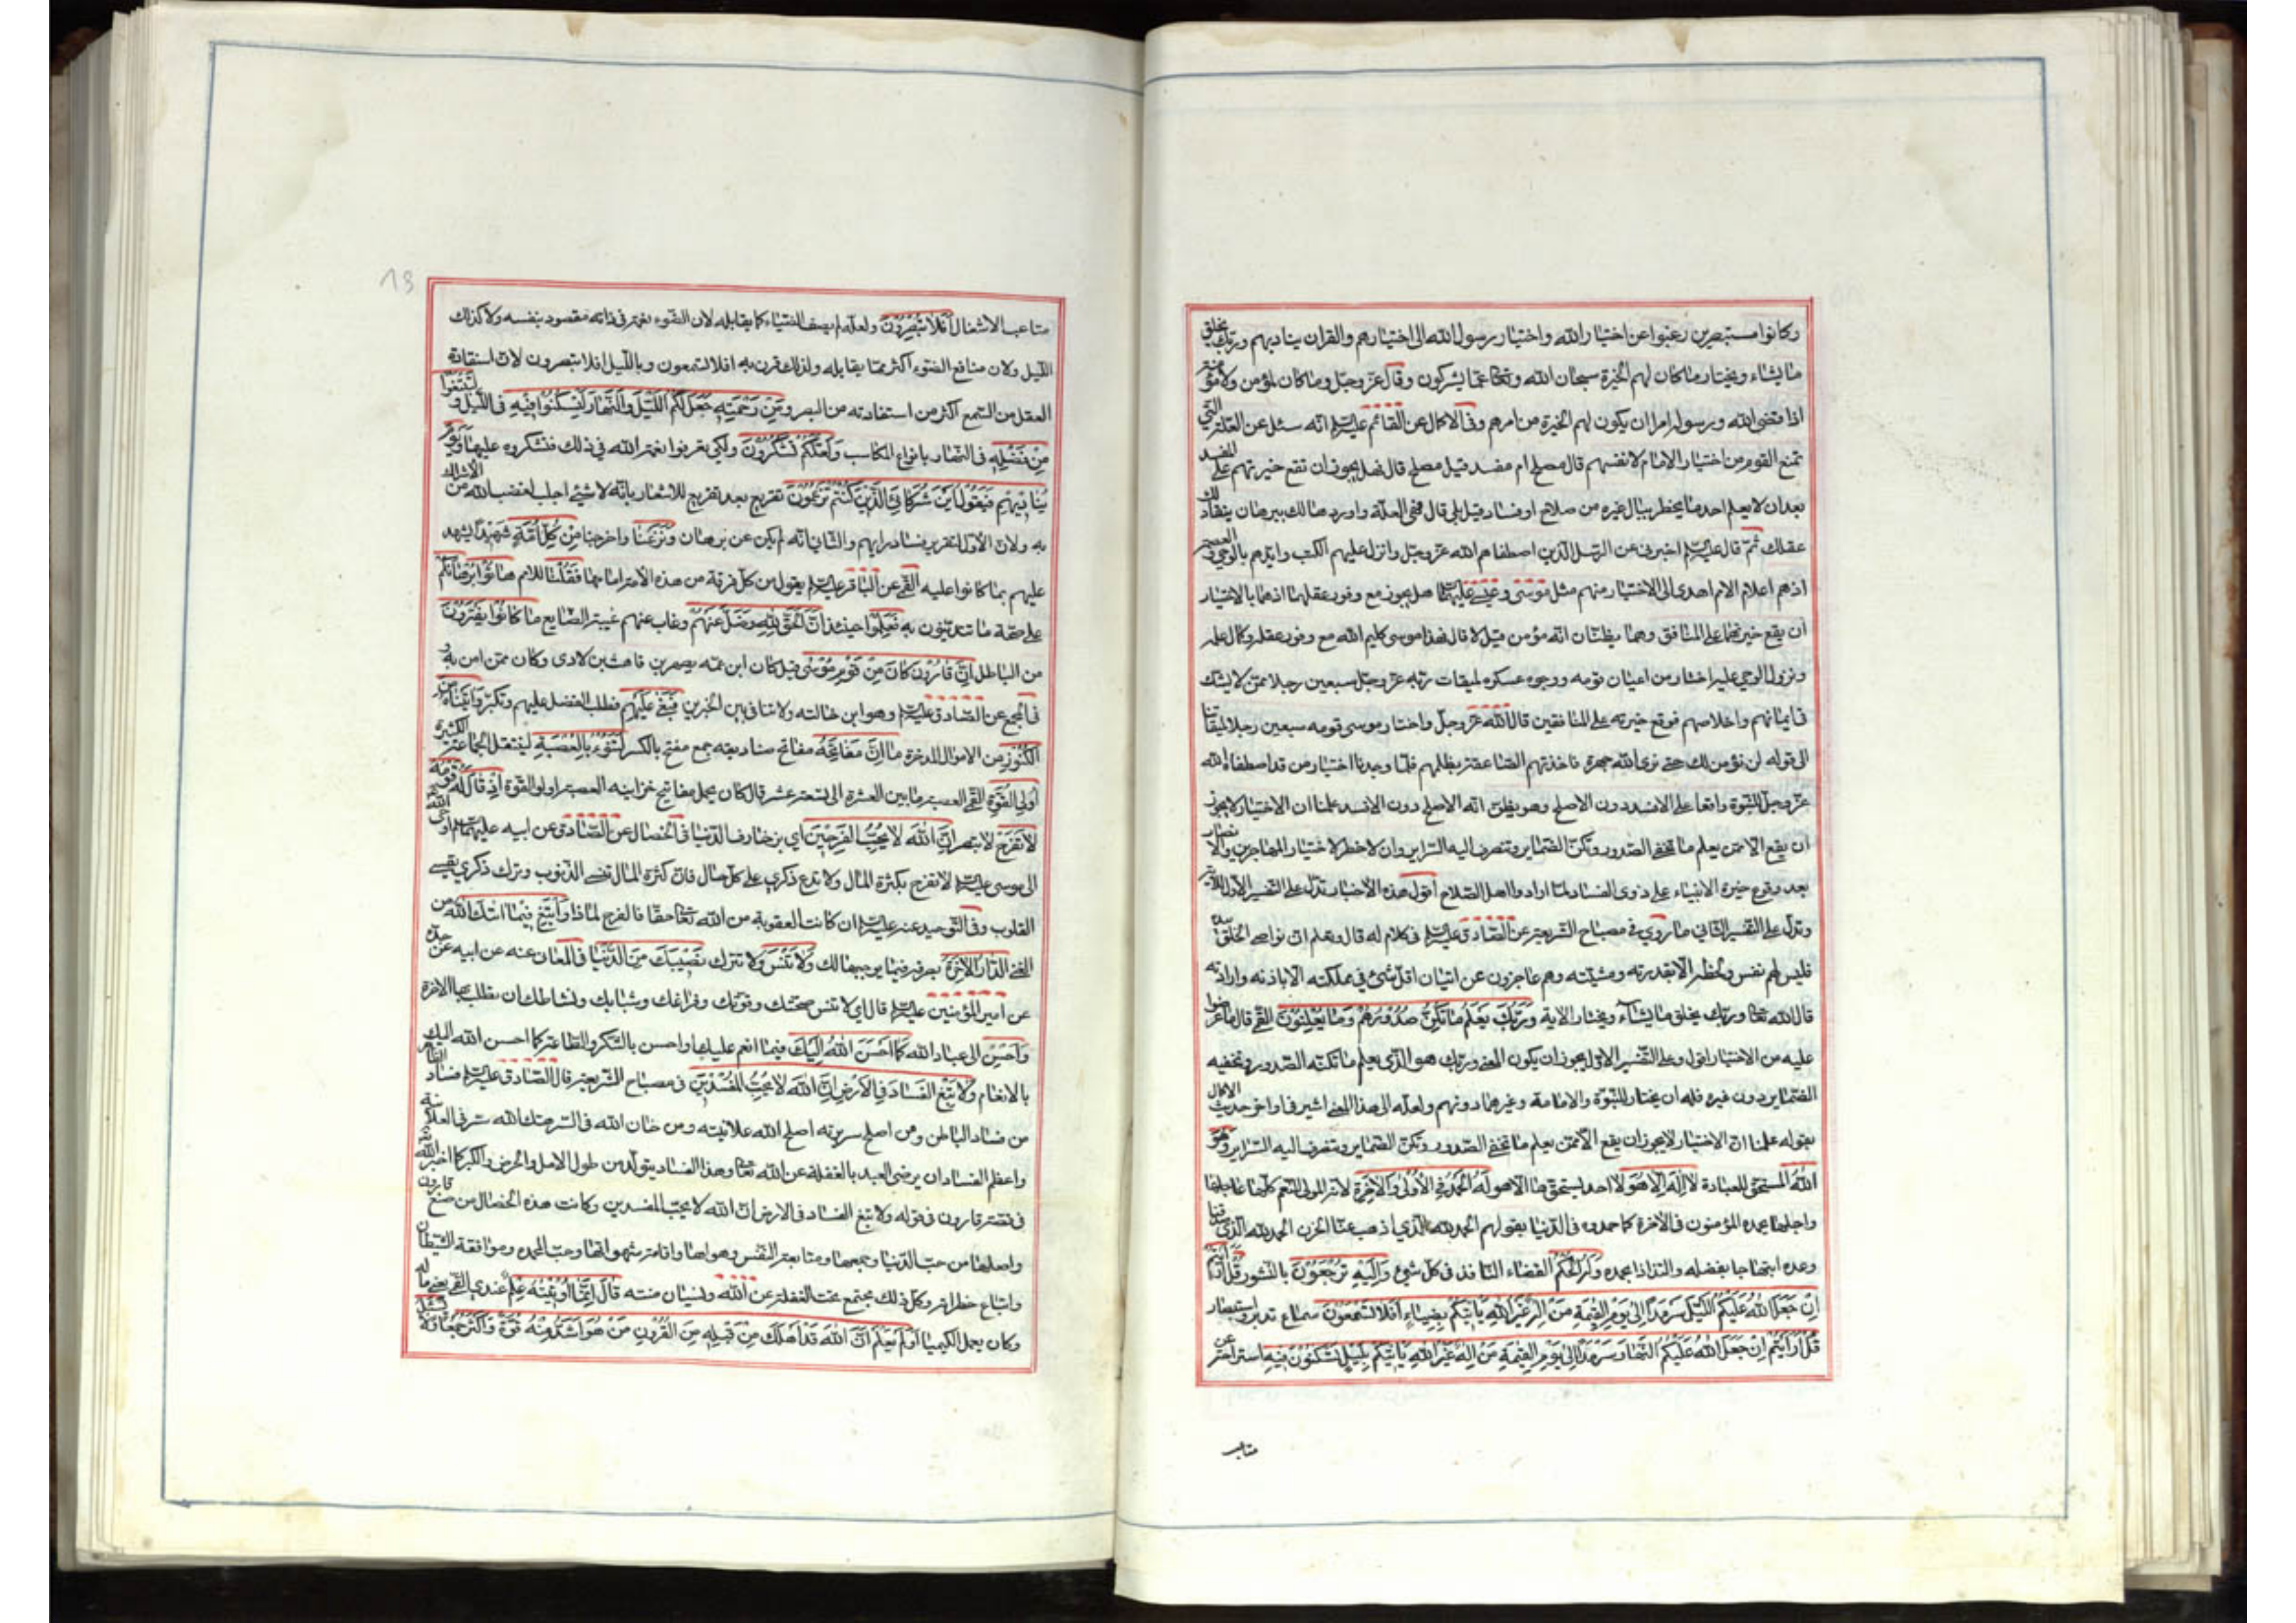 وكانوا مستبصرين رغبوا عن اختيار الله واختيار رسول الله الى اختيارهم والقران يناديهم وربك يخلق
ما يشاء ويختار ما كان لهم الخيرة سبحان الله وتعالى عما يشركون وقال عز وجل وما كان لمؤمن ولا مؤمنة
اذا قضى الله ورسوله امرا ان يكون لهم الخيرة من امرهم وفي الاكمال عن القائم عليه السلم انه سئل عن العلة التي
تمنع القوم من اختيار الامام لانفسهم قال مصلح ام مفسد قيل مصلح قال فهل يجوز ان تقع خيرتهم على المفسد
بعد ان لا يعلم احد ما يخطر ببال غيره من صلاح او فساد قيل بلى قال فهي العلة واوردها لك ببرهان ينقاد لك
عقلك ثم قال عليه السلم اخبرني عن الرسل الذين اصطفاهم الله عز وجل وانزل عليهم الكتب وايدهم بالوحي والعصمة
اذ هم اعلام الامم اهدى الى الاختيار منهم مثل موسى وعيسى عليهما هل يجوز مع وفور عقلهما اذ هما بالاختيار
ان يقع خيرتهما على المنافق وهما يظنان انه مؤمن قيل لا قال فهذا موسى كليم الله مع وفور عقله وكمال علمه
ونزول الوحي عليه اختار من اعيان قومه ووجوه عسكره لميقات ربه عز وجل سبعين رجلا ممن لا يشك
في ايمانهم واخلاصهم فوقع خيرته على المنافقين قال الله عز وجل واختار موسى قومه سبعين رجلا لميقاتنا
الى قوله لن نؤمن لك حتى نرى الله جهرة فاخذتهم الصاعقة بظلمهم فلما وجدنا اختيار من قد اصطفاه الله
عز وجل للنبوة واقعا على الافسد دون الاصلح وهو يظن انه الاصلح دون الافسد علمنا ان الاختيار لا يجوز
ان يقع الا ممن يعلم ما تخفي الصدور وتكن الضماير وتتصرف اليه السراير وان لا خطر لاختيار المهاجرين والانصار
بعد وقوع خيرة الانبياء على ذوي الفساد لما ارادوا اهل الصلاح اقول هذه الاخبار تدل على التفسير الاول للاية
وتدل على التفسير الثاني ما روي في مصباح الشريعة عن الصادق عليه السلم في كلام له قال وتعلم ان نواصي الخلق بيده
فليس لهم نفس ولحظة الا بقدرته ومشيته وهم عاجزون عن اتيان اقل شئ في مملكته الا باذنه وارادته
قال الله تعالى وربك يخلق ما يشاء ويختار الاية وربك يعلم ما تكن صدورهم وما يعلنون القمي قال ما عزموا
عليه من الاختيار اقول وعلى التفسير الاول يجوز ان يكون المعنى وربك هو الذي يعلم ما تكنه الصدور وتخفيه
الضماير دون غيره فله ان يختار للنبوة والامامة وغيرهما دونهم ولعله الى هذا المعنى اشير في اواخر حديث الاكمال
بقوله علمنا ان الاختيار لا يجوز ان يقع الا ممن يعلم ما تخفي الصدور وتكن الضماير وتتصرف اليه السراير وهو
الله المستحق للعبادة لا اله الا هو لا احد يستحقها الا هو له الحمد في الاولى والاخرة لانه المولى للنعم كلها عاجلها
واجلها يحمده المؤمنون في الاخرة كما حمدوه في الدنيا بقولهم الحمد لله الذي اذهب عنا الحزن الحمد لله الذي صدقنا
وعده ابتهاجا بفضله والتذاذا بحمده وله الحكم القضاء النافذ في كل شئ واليه ترجعون بالنشور قل ارايتم
ان جعل الله عليكم الليل سرمدا الى يوم القيمة من اله غير الله ياتيكم بضياء افلا تسمعون سماع تدبر واستبصار
قل ارايتم ان جعل الله عليكم النهار سرمدا الى يوم القيمة من اله غير الله ياتيكم بليل تسكنون فيه استراحة عن
متاعب
18
متاعب الاشغال افلا تبصرون ولعله لم يصف الضياء كما يقابله لان الضوء نعمة في ذاته مقصود بنفسه ولا كذلك
الليل ولان منافع الضوء اكثر مما يقابله ولذلك قرن به افلا تسمعون وبالليل افلا تبصرون لان استفادة
العقل من السمع اكثر من استفادته من البصر ومن رحمته جعل لكم الليل والنهار لتسكنوا فيه في الليل ولتبتغوا
من فضله في النهار بانواع المكاسب ولعلكم تشكرون ولكي تعرفوا نعمة الله في ذلك فتشكروه عليها ويوم
يناديهم فيقول اين شركائي الذين كنتم تزعمون تقريع بعد تقريع للاشعار بانه لا شئ اجلب لغضب الله من الاشراك
به ولان الاول لتقرير فساد رايهم والثاني انه لم يكن عن برهان ونزعنا واخرجنا من كل امة شهيدا يشهد
عليهم بما كانوا عليه القمي عن الباقر عليه السلم يقول من كل فرقة من هذه الامة امامها فقلنا للامم هاتوا برهانكم
على صحة ما تتدينون به فعلموا حينئذ ان الحق لله وضل عنهم وغاب عنهم غيبة الضايع ما كانوا يفترون
من الباطل ان قارون كان من قوم موسى قيل كان ابن عمه يصهر بن قاهث بن لاوى وكان ممن امن به و
في المجمع عن الصادق عليه السلم وهو ابن خالته ولا تنافي بين الخبرين فبغى عليهم فطلب الفضل عليهم وتكبر واتيناه من
الكنوز من الاموال المدخرة ما ان مفاتحه مفاتح صناديقه جمع مفتح بالكسر لتنوء بالعصبة ليثقل الجماعة الكثيرة
اولي القوة القمي العصبة ما بين العشرة الى تسعة عشر قال كان يحمل مفاتيح خزاينه العصبة اولو القوة اذ قال له قومه
لا تفرح لا تبطر ان الله لا يحب الفرحين اي بزخارف الدنيا في الخصال عن الصادق عن ابيه عليهما السلم اوحى الله
الى موسى عليه السلم لا تفرح بكثرة المال ولا تدع ذكري على كل حال فان كثرة المال تنسي الذنوب وترك ذكري يقسي
القلوب وفي التوحيد عنه عليه السلم ان كانت العقوبة من الله تعالى حقا فالفرح لماذا وابتغ فيما اتيك الله من
الغنى الدار الاخرة بصرفه فيما يوجبها لك ولا تنس ولا تترك نصيبك من الدنيا في المعاني عنه عن ابيه عن جده
عن امير المؤمنين عليه السلم قال اي لا تنس صحتك وقوتك وفراغك وشبابك ونشاطك ان تطلب بها الاخرة
واحسن الى عباد الله كما احسن الله اليك فيما انعم عليك واحسن بالشكر والطاعة كما احسن الله اليك
بالانعام ولا تبغ الفساد في الارض ان الله لا يحب المفسدين في مصباح الشريعة قال الصادق عليه السلم فساد الظاهر
من فساد الباطن ومن اصلح سريرته اصلح الله علانيته ومن خان الله في السر هتك الله ستره في العلانية
واعظم الفساد ان يرضى العبد بالغفلة عن الله تعالى وهذا الفساد يتولد من طول الامل والحرص والكبر كما اخبر الله
في قصة قارون في قوله ولا تبغ الفساد في الارض ان الله لا يحب المفسدين وكانت هذه الخصال من صنع قارون
واصلها من حب الدنيا وجمعها ومتابعة النفس وهواها واقامة شهواتها وحب المحمدة وموافقة الشيطان
واتباع خطراته وكل ذلك مجتمع تحت الغفلة عن الله ونسيان مننه قال انما اوتيته على علم عندي القمي يعني ماله
وكان يعمل الكيميا اولم يعلم ان الله قد اهلك من قبله من القرون من هو اشد منه قوة واكثر جمعا ولا يسئل